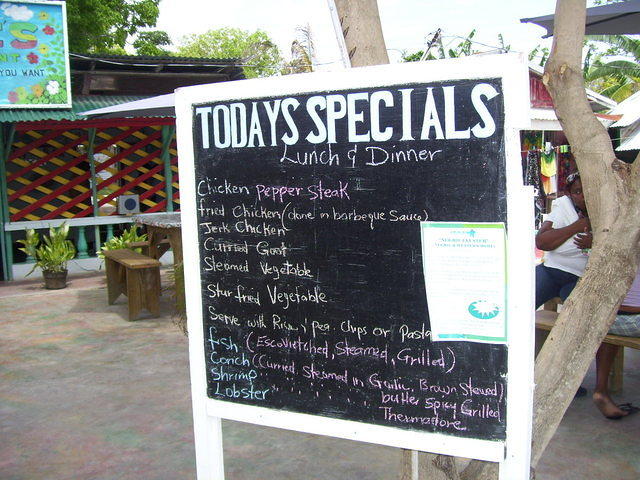 S
NT
YOU WANT
TODAYS SPECIALS
Lunch & Dinner
Chicken pepper steak
fried Chicken (done in barbeque Sauce)
Jerk Chicken
Curried Goat
Steamed Vegetable
Stur fried Vegetable
Serve with Rice n' pea. Chips or Pasta
fish (Escovietched, Steamed, Grilled)
Conch (Curried, Steamed in Garlic, Brown Stewed)
Shrimp butter Spicy Grilled
Lobster " " " " " Thermadore